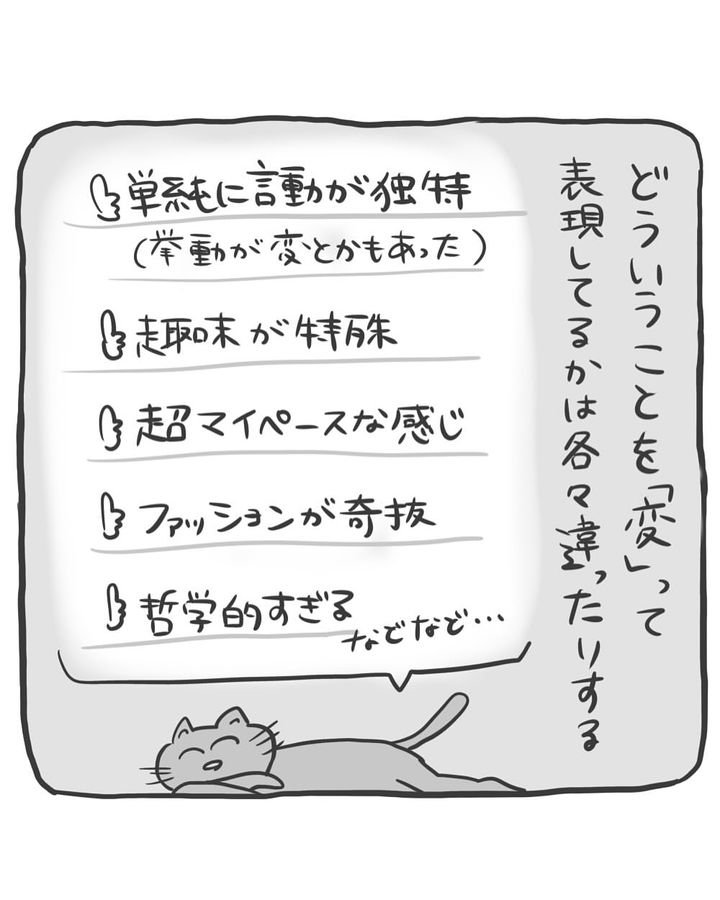 どういうことを「変」って
表現してるかは各々違ったりする
単純に言動が独特
(挙動が変とかもあった)
趣味が特殊
超マイペースな感じ
ファッションが奇抜
哲学的すぎる
などなど…